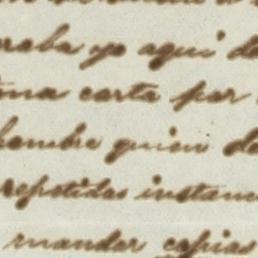 raba yo aqui de
una carta por
hombre quien de
repetidas instan
mandar copias